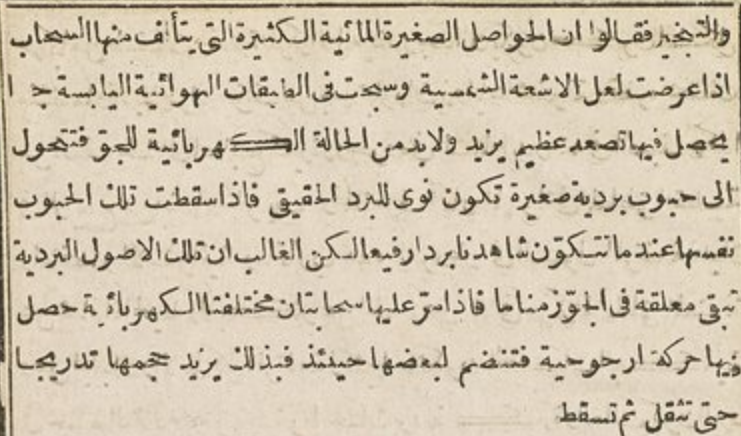 والتبخير فقالوا ان الحواصل الصغيرة المائية الكثيرة التى يتألف منها السحاب
اذا عرضت لعل الاشعة الشمسية وسبحت فى الطبقات الهوائية اليابسة جدا
يحصل فيها تصعد عظيم يزيد ولابد من الحالة الكهربائية للجو فتتحول
الى حبوب بردية صغيرة تكون نوى للبرد الحقيقى فاذا سقطت تلك الحبوب
نفسها عند ما تتكون شاهدنا بردا رفيعا لكن الغالب ان تلك الاصول البردية
تبقى معلقة فى الجو زمنا ما فاذا مر عليها سحابتان مختلفتا الكهربائية حصل
فيها حركة ارجوحية فتنضم لبعضها حينئذ فبذلك يزيد حجمها تدريجا
حتى تثقل ثم تسقط